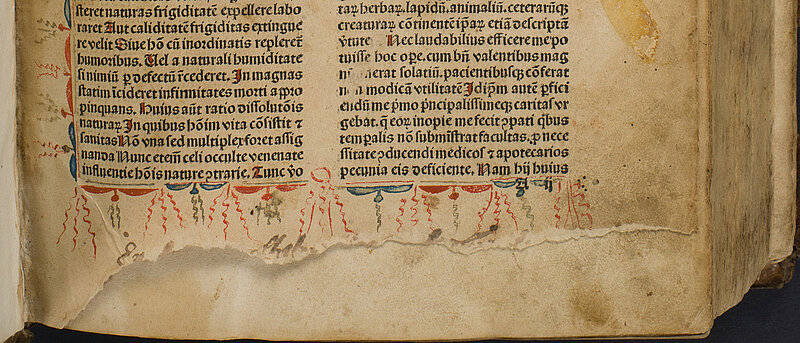 steret naturas frigiditatē expellere labo
raret Aut caliditatē frigiditas extingue
re velit Siue hō cū inordinatis repleret̄
humoribus. Uel a naturali humiditate
si nimiū ꝑ defectū īcederet. In magnas
statim īcideret infirmitates morti appro
pinquans. Huius aūt ratio dissolutōis
naturaꝝ In quibus hōim vita cōsistit ⁊
sanitas Nō vna sed multiplex foret assig
nanda Nunc eteīm celi occulte venenate
influentie hōis nature ꝯtrarie. Tunc v̄o
raꝝ herbaꝝ. lapidū. animaliū. ceterarūqꝫ
creaturaꝝ cōtinentē ip̄aꝝ etiā descriptā
v̄tute Nec laudabilius efficere me po
tuisse hoc oꝑe. cum bn̄ valentibus mag
erat solatiū. pacientibusqꝫ cōferat
modicā vtilitatē Id ip̄m autē ꝑfici
endū me p̄mo p̄ncipalissimeqꝫ caritas vr
gebat. ꝙ eoꝝ inopie me fecit ꝯpati q̄bus
temꝑalis nō submīstrat facultas. ꝓ nece
ssitate ꝓducendi medicos ⁊ apotecarios
pecunia eis deficiente. Nam hij huius